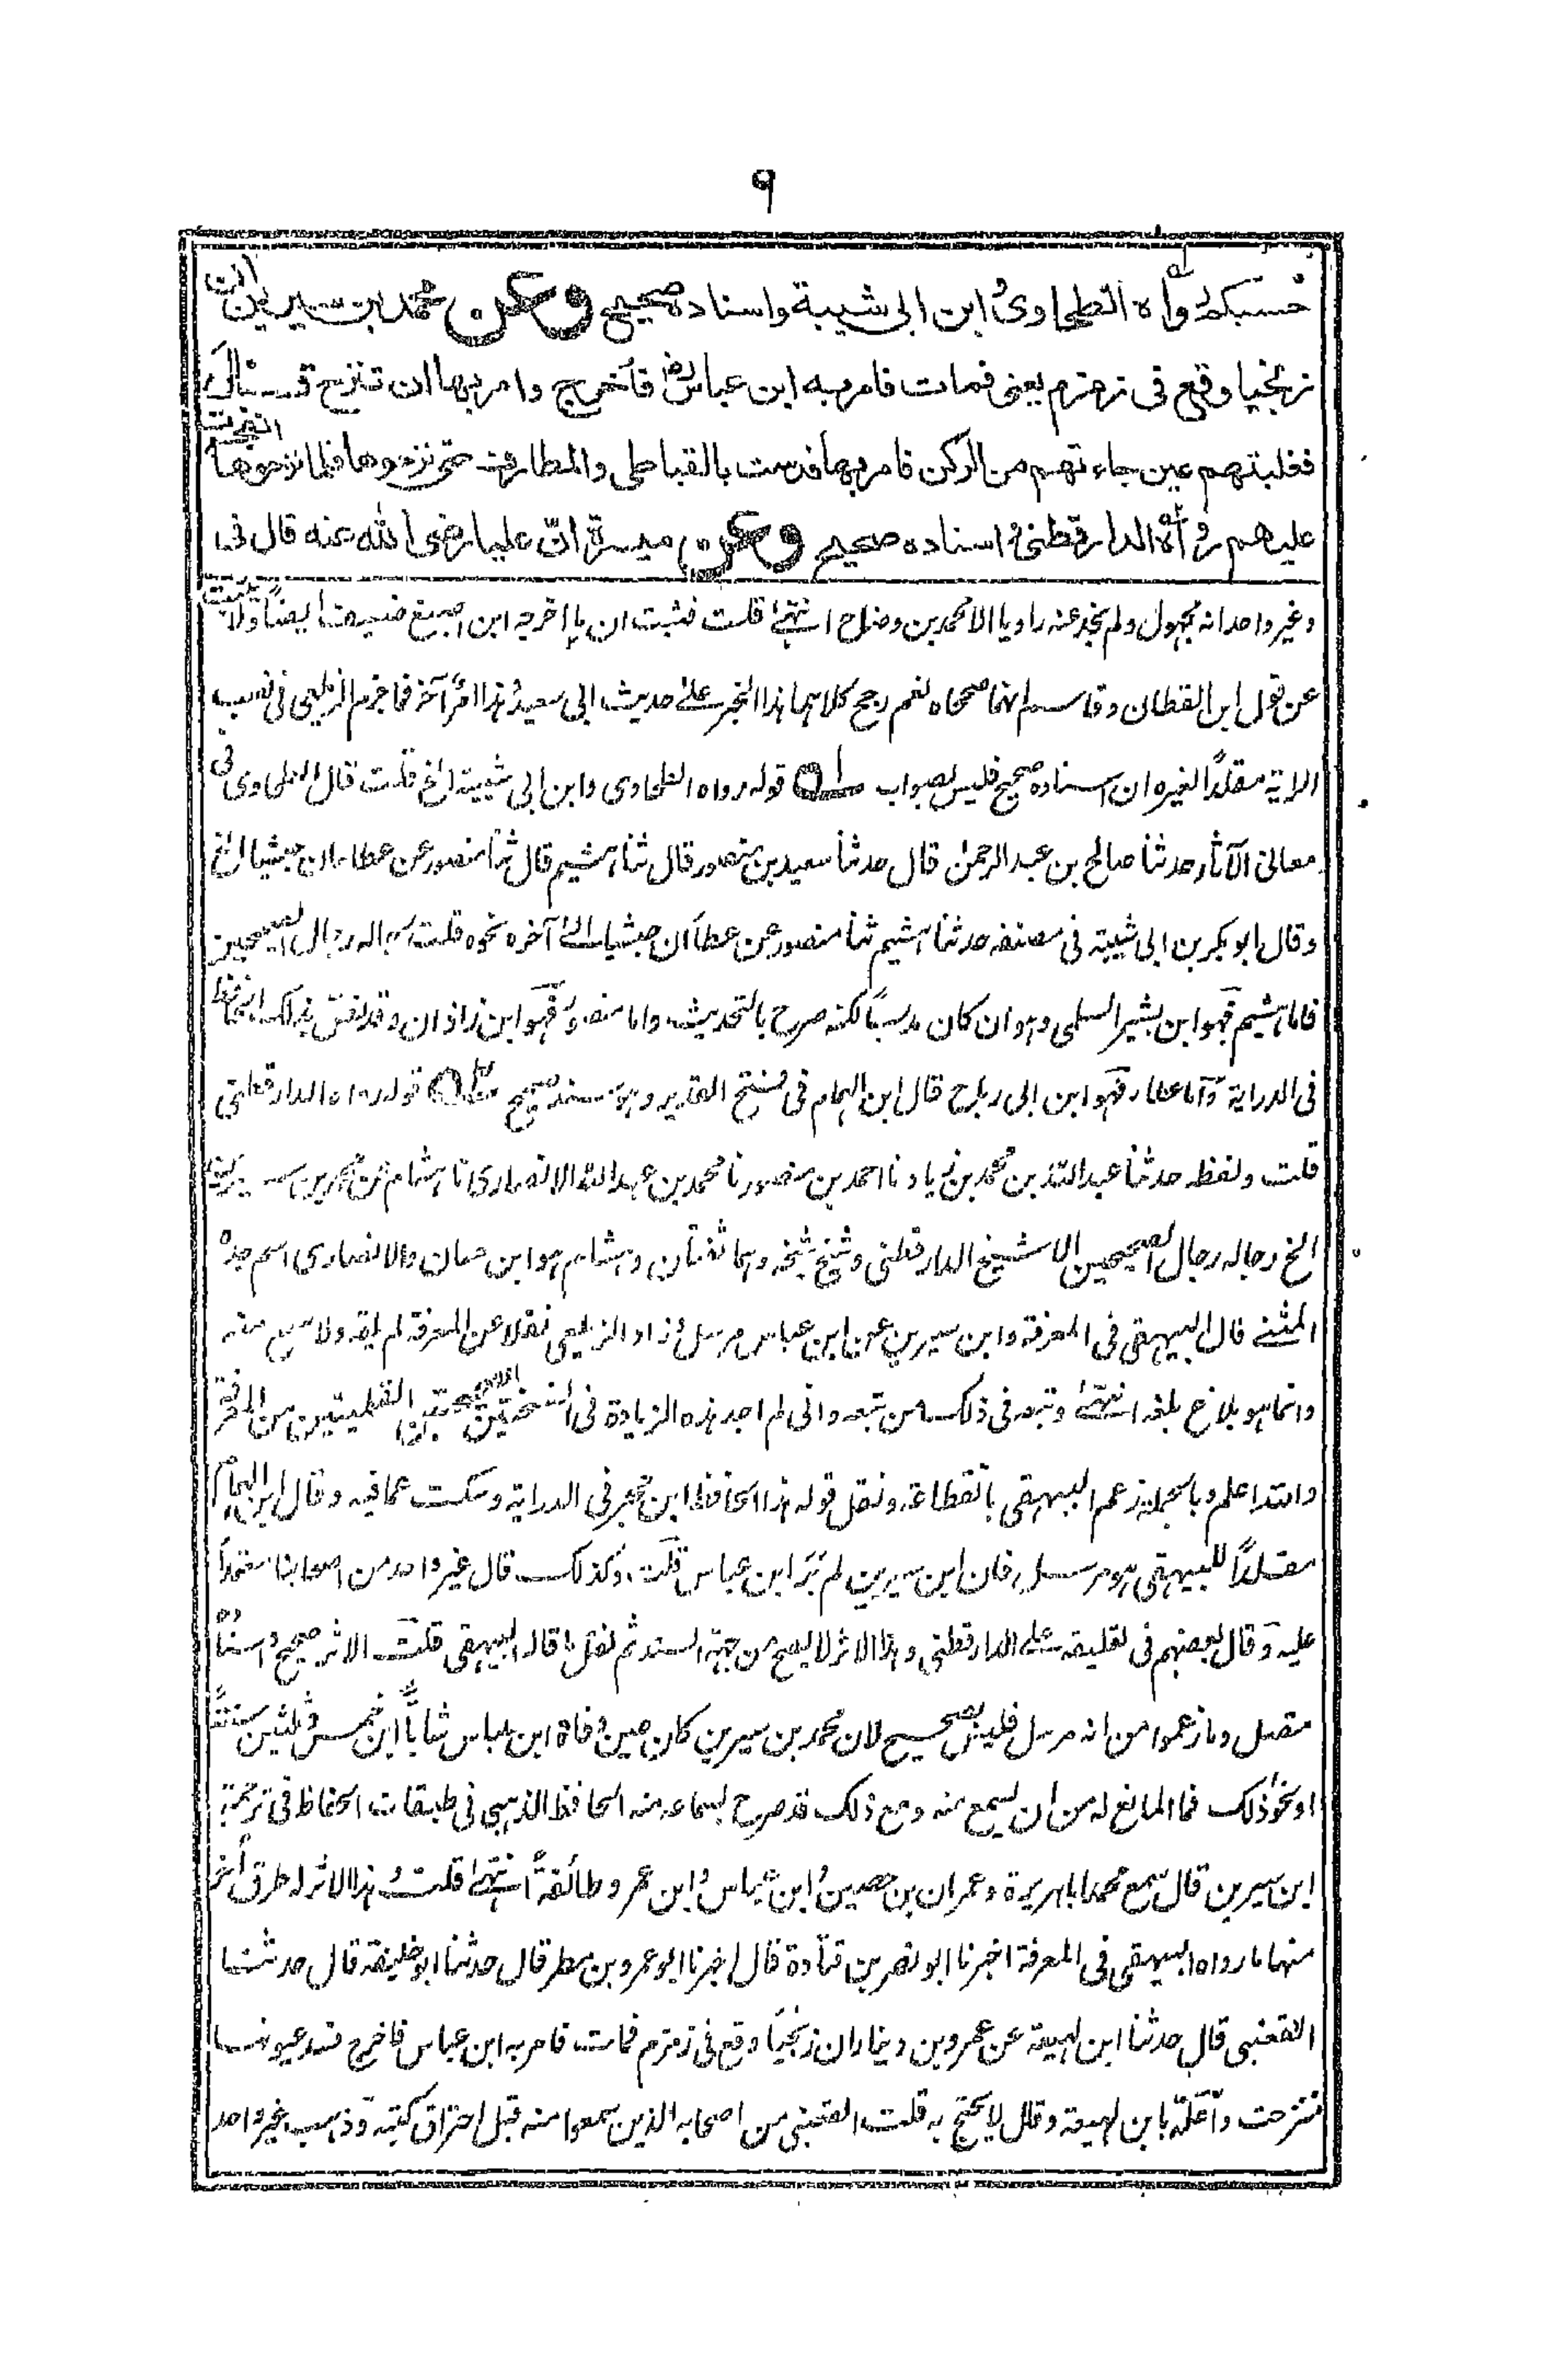 ٩
حسبكم رواه الطحاوى وابن ابى شيبة واسناده صحيح وعن محمد بن سيرين ان
زنجيا وقع فى زمزم يعنى فمات فامر به ابن عباسؓ فاخرج وامر بها ان تنزح قال
فغلبتهم عين جاءتهم من الركن فامر بها فدست بالقباطى والمطارف حتى نزحوها فلما نزحوها انفجرت
عليهم رواه الدارقطنى واسناده صحيح وعن ميسرة انّ عليا رضى الله عنه قال فى
وغير واحد انه مجهول ولم نجد عنه راويا الا محمد بن وضاح انتهى قلت فثبت ان ما اخرجه ابن اصبغ ضعيف ايضاً ولا يثبت
عن قول ابن القطان وقاسم انهما صححاه نعم رجح كلاهما هذا الخبر على حديث ابى سعيد وهذا امر آخر فما جزم الزيلعى فى نصب
الراية مقلدًا لغيره ان اسناده صحيح فليس بصواب ١ قوله رواه الطحاوى وابن ابى شيبة الخ قلت قال الطحاوى فى
معانى الآثار حدثنا صالح بن عبد الرحمٰن قال حدثنا سعيد بن منصور قال ثنا هشيم قال ثنا منصور عن عطاء ان حبشيا الخ
وقال ابو بكر بن ابى شيبة فى مصنفه حدثنا هشيم ثنا منصور عن عطا ان حبشيا الى آخره نحوه قلت رجاله رجال الصحيحين
فاما هشيم فهو ابن بشير السلمى وهو ان كان مدلساً لكنه صرح بالتحديث واما منصور فهو ابن زاذان وقد نص بذلك الحافظ
فى الدراية وأما عطاء فهو ابن ابى رباح قال ابن الهمام فى فتح القدير وهو سند صحيح ٢ قوله رواه الدارقطنى
قلت ولفظه حدثنا عبد الله بن محمد بن زياد نا احمد بن منصور نا محمد بن عبد الله الانصارى نا هشام عن محمد بن سيرين
الخ رجاله رجال الصحيحين الا شيخ الدارقطنى وشيخ شيخه وهما ثقتان وهشام هو ابن حسان والانصارى اسم جده
المثنى قال البيهقى فى المعرفة وابن سيرين عن ابن عباس مرسل وزاد الزيلعى نقلا عن المعرفة لم يلقه ولا سمع منه
وانما هو بلاغ بلغه انتهى وتبعه فى ذلك من تبعه وانى لم اجد هذه الزيادة فى النسختين الصحيحتين القلميتين من المعرفة
والله اعلم وبالجملة زعم البيهقى بانقطاعه ونقل قوله هذا الحافظ ابن حجر فى الدراية وسكت عما فيه وقال ابن الهمام
مقلدًا للبيهقى هو مرسل فان ابن سيرين لم ير ابن عباس قلت وكذلك قال غير واحد من اصحابنا معتمداً
عليه وقال بعضهم فى تعليقه على الدارقطنى وهذا الاثر لا يصح من جهة السند ثم نقل ما قاله البيهقى قلت الاثر صحيح واسناده
متصل وما زعموا من انه مرسل فليس بصحيح لان محمد بن سيرين كان حين وفاة ابن عباس شاباً ابن خمس وثلثين سنة
او نحو ذلك فما المانع له من ان يسمع منه ومع ذلك قد صرح بسماعه منه الحافظ الذهبى فى طبقات الحفاظ فى ترجمة
ابن سيرين قال سمع محمد ابا هريرة وعمران بن حصين وابن عباس وابن عمر وطائفة انتهى قلت وهذا الاثر له طرق أخر
منها ما رواه البيهقى فى المعرفة اخبرنا ابو نصر بن قتادة قال اخبرنا ابو عمرو بن مطر قال حدثنا ابو خليفة قال حدثنا
القعنبى قال حدثنا ابن لهيعة عن عمرو بن دينار ان زنجيا وقع فى زمزم فمات فامر به ابن عباس فاخرج فسد عيونها
فنزحت وأعله بابن لهيعة وقال لا يحتج به قلت القعنبى من اصحابه الذين سمعوا منه قبل احتراق كتبه وذهب غير واحد